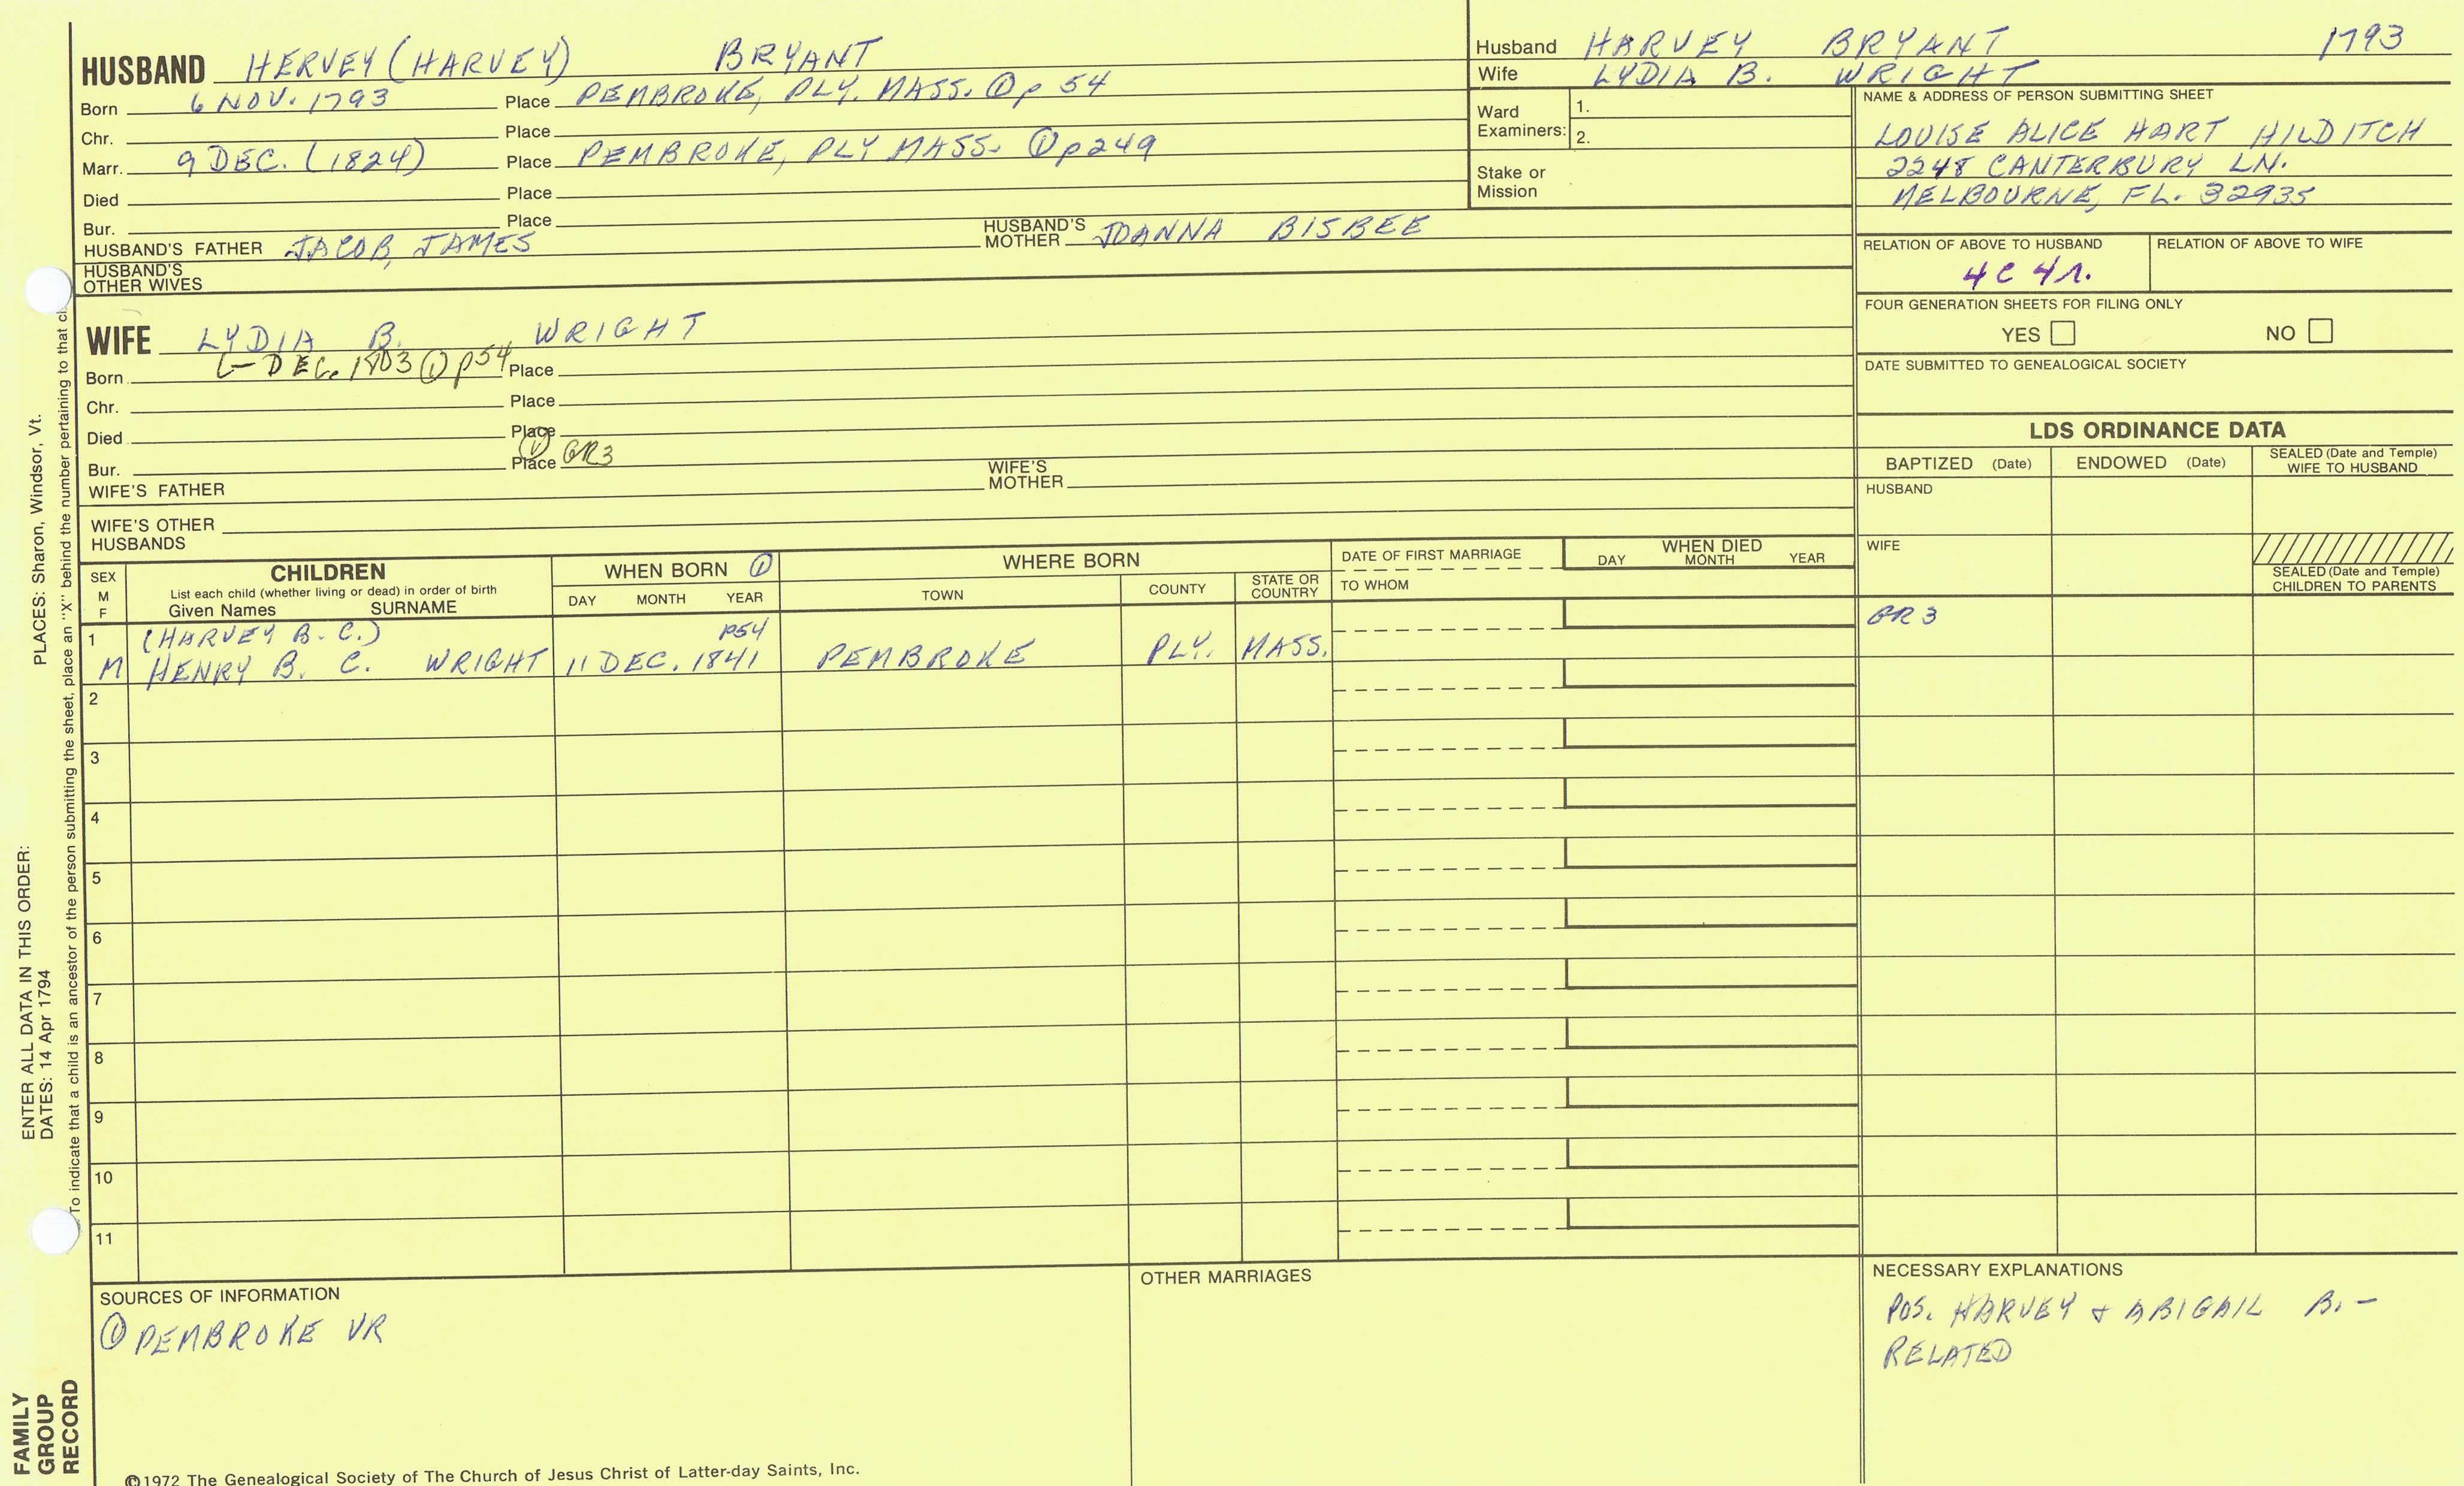 HUSBAND HERVEY (HARVEY) BRYANT
Born 6 NOV. 1793 Place PEMBROKE, PLY. MASS. ① p 54
Chr. Place
Marr. 9 DEC. (1824) Place PEMBROKE, PLY MASS. ① p249
Died Place
Bur. Place
HUSBAND'S FATHER JACOB, JAMES HUSBAND'S MOTHER JOANNA BISBEE
HUSBAND'S
OTHER WIVES
Husband HARVEY BRYANT 1793
Wife LYDIA B. WRIGHT
Ward
Examiners: 1.
2.
Stake or
Mission
NAME & ADDRESS OF PERSON SUBMITTING SHEET
LOUISE ALICE HART HILDITCH
2248 CANTERBURY LN.
MELBOURNE, FL. 32935
RELATION OF ABOVE TO HUSBAND RELATION OF ABOVE TO WIFE
4C 4r.
FOUR GENERATION SHEETS FOR FILING ONLY
YES NO
DATE SUBMITTED TO GENEALOGICAL SOCIETY
WIFE LYDIA B. WRIGHT
Born – DEC. 1803 ① p54 Place
Chr. Place
Died Place
Bur. Place ① GR3
WIFE'S FATHER WIFE'S MOTHER
WIFE'S OTHER
HUSBANDS
LDS ORDINANCE DATA
BAPTIZED (Date) ENDOWED (Date) SEALED (Date and Temple)
WIFE TO HUSBAND
HUSBAND
WIFE
SEALED (Date and Temple)
CHILDREN TO PARENTS
SEX
M
F
CHILDREN
List each child (whether living or dead) in order of birth
Given Names SURNAME
WHEN BORN ①
DAY MONTH YEAR
WHERE BORN
TOWN COUNTY STATE OR
COUNTRY
DATE OF FIRST MARRIAGE
TO WHOM
WHEN DIED
DAY MONTH YEAR
1 (HARVEY B. C.) p54 GR3
M HENRY B. C. WRIGHT 11 DEC. 1841 PEMBROKE PLY. MASS.
2
3
4
5
6
7
8
9
10
11
SOURCES OF INFORMATION
① PEMBROKE VR
OTHER MARRIAGES
NECESSARY EXPLANATIONS
POS. HARVEY & ABIGAIL B. –
RELATED
©1972 The Genealogical Society of The Church of Jesus Christ of Latter-day Saints, Inc.
FAMILY
GROUP
RECORD
ENTER ALL DATA IN THIS ORDER:
DATES: 14 Apr 1794
PLACES: Sharon, Windsor, Vt.
To indicate that a child is an ancestor of the person submitting the sheet, place an "X" behind the number pertaining to that